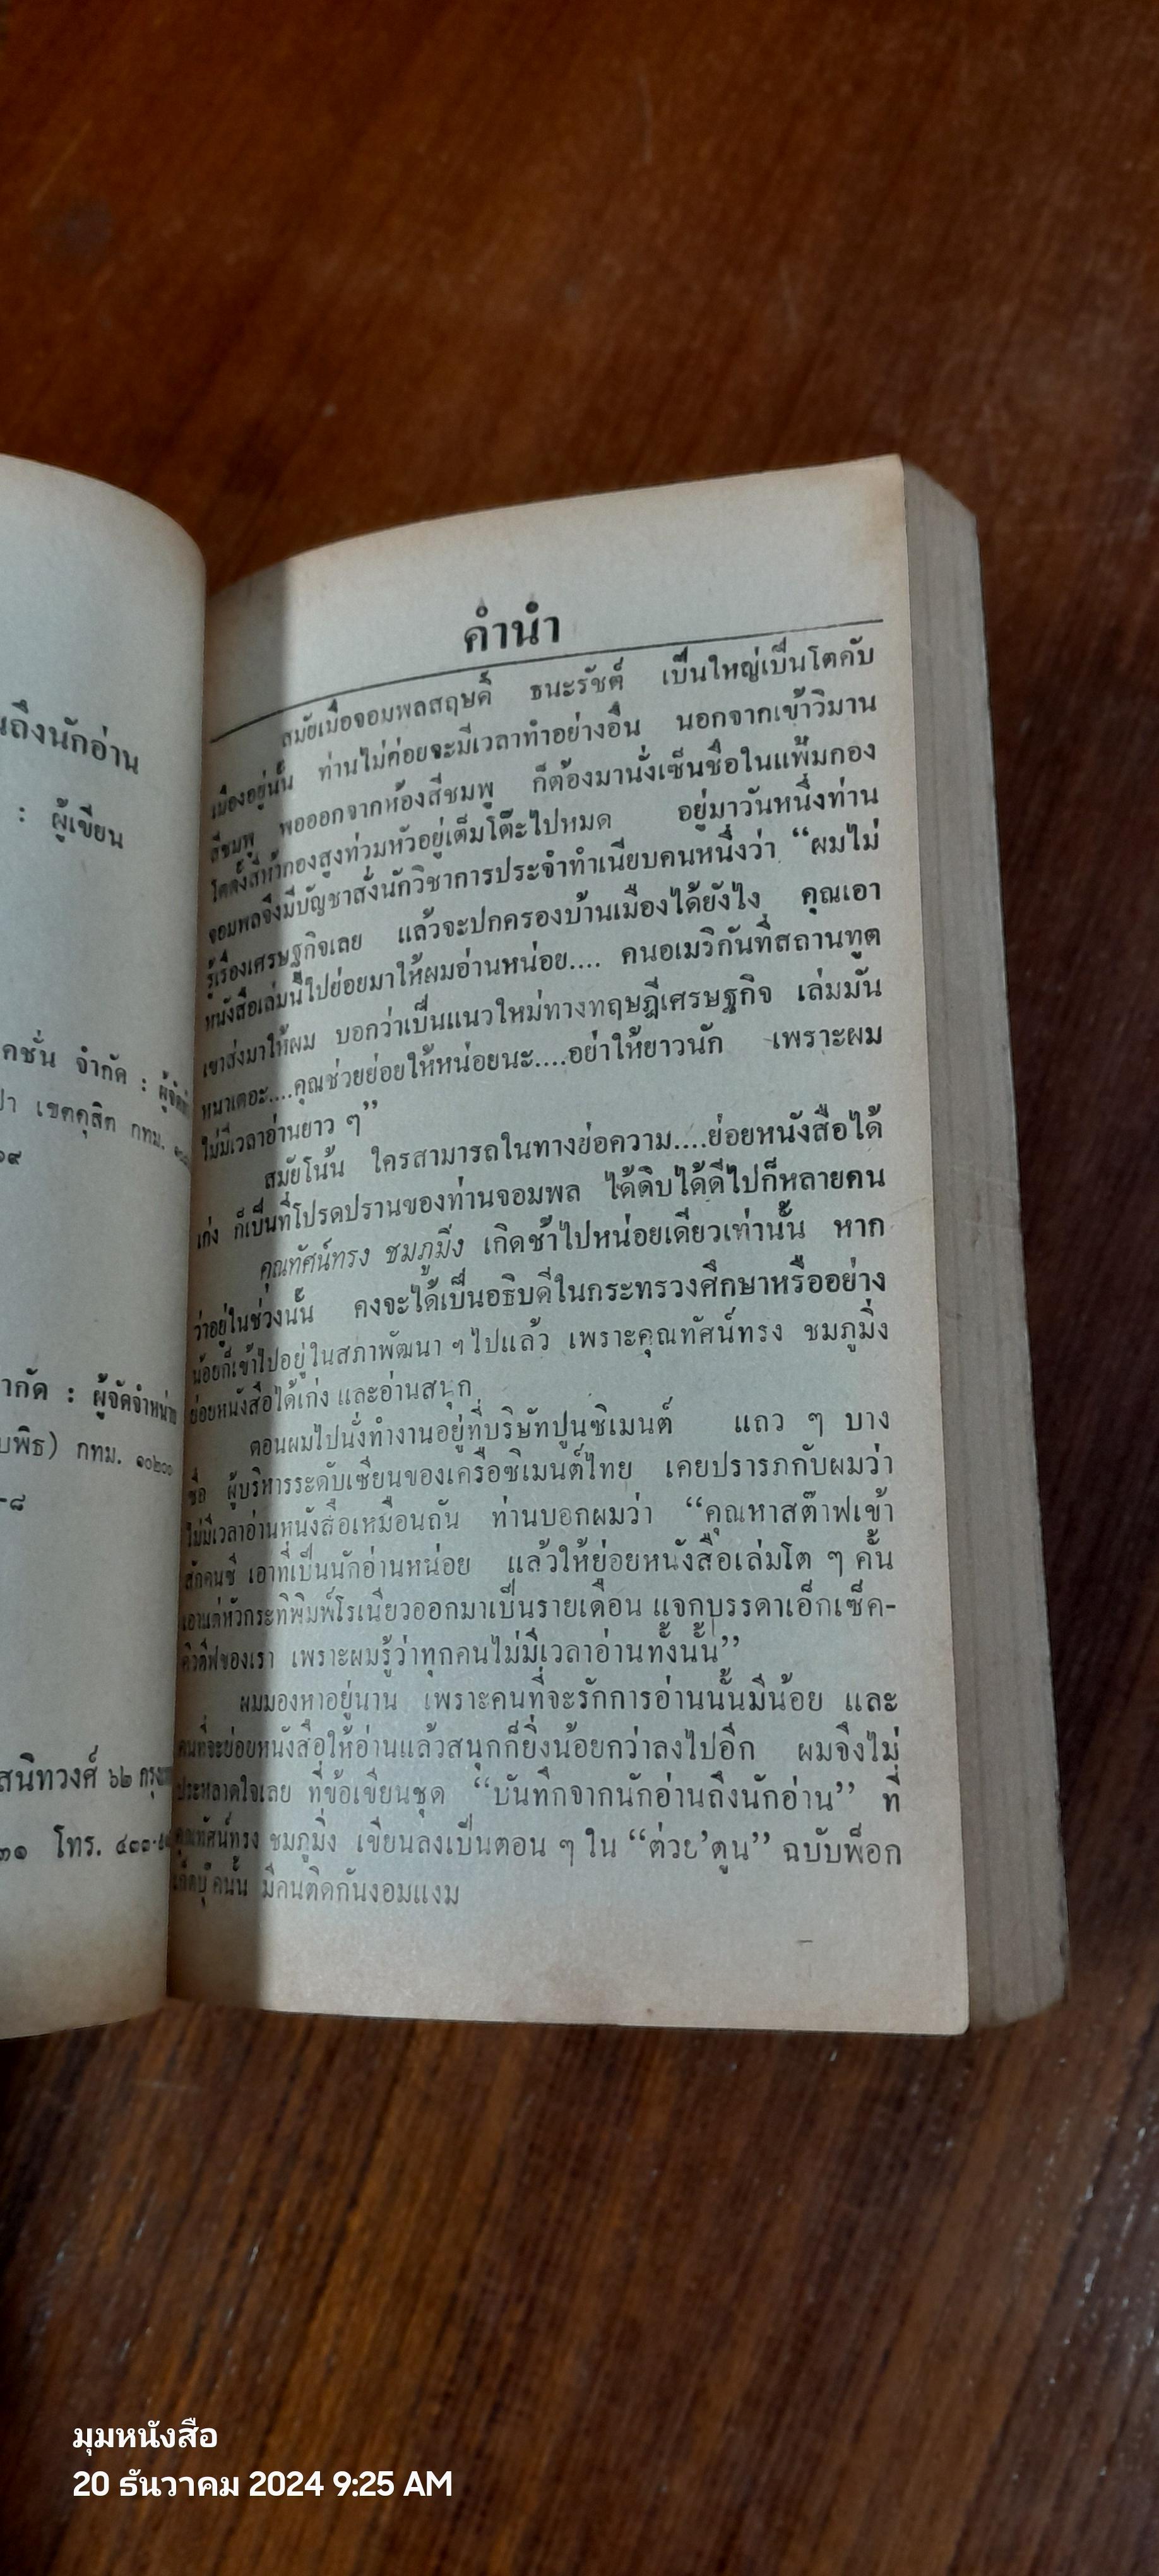 นถึงนักอ่าน
: ผู้เขียน
คชั่น จำกัด :
เขตดุสิต กทม.
ากัด : ผู้จัดจำหน่าย
บพิธ) กทม. ๑๐๒๐๐
-๘
สนิทวงศ์ ๖๒
๓๑ โทร.
คำนำ
สมัยเมื่อจอมพลสฤษดิ์ ธนะรัชต์ เป็นใหญ่เป็นโตคับ
เมืองอยู่นั้น ท่านไม่ค่อยจะมีเวลาทำอย่างอื่น นอกจากเข้าวิมาน
สีชมพู พอออกจากห้องสีชมพู ก็ต้องมานั่งเซ็นชื่อในแฟ้มกอง
โตตั้งสี่ห้ากองสูงท่วมหัวอยู่เต็มโต๊ะไปหมด อยู่มาวันหนึ่งท่าน
จอมพลจึงมีบัญชาสั่งนักวิชาการประจำทำเนียบคนหนึ่งว่า “ผมไม่
รู้เรื่องเศรษฐกิจเลย แล้วจะปกครองบ้านเมืองได้ยังไง คุณเอา
หนังสือเล่มนี้ไปย่อยมาให้ผมอ่านหน่อย.... คนอเมริกันที่สถานทูต
เขาส่งมาให้ผม บอกว่าเป็นแนวใหม่ทางทฤษฎีเศรษฐกิจ เล่มมัน
หนาเตอะ....คุณช่วยย่อยให้หน่อยนะ....อย่าให้ยาวนัก เพราะผม
ไม่มีเวลาอ่านยาว ๆ”
สมัยโน้น ใครสามารถในทางย่อความ....ย่อยหนังสือได้
เก่ง ก็เป็นที่โปรดปรานของท่านจอมพล ได้ดิบได้ดีไปก็หลายคน
คุณทัศน์ทรง ชมภูมิ่ง เกิดช้าไปหน่อยเดียวเท่านั้น หาก
ว่าอยู่ในช่วงนั้น คงจะได้เป็นอธิบดีในกระทรวงศึกษาหรืออย่าง
น้อยก็เข้าไปอยู่ในสภาพัฒนา ๆ ไปแล้ว เพราะคุณทัศน์ทรง ชมภูมิ่ง
ย่อยหนังสือได้เก่ง และอ่านสนุก
ตอนผมไปนั่งทำงานอยู่ที่บริษัทปูนซิเมนต์ แถว ๆ บาง
ซื่อ ผู้บริหารระดับเซียนของเครือซิเมนต์ไทย เคยปรารภกับผมว่า
ไม่มีเวลาอ่านหนังสือเหมือนกัน ท่านบอกผมว่า “คุณหาสต๊าฟเข้า
สักคนซี เอาที่เป็นนักอ่านหน่อย แล้วให้ย่อยหนังสือเล่มโต ๆ คั้น
เอาแต่หัวกระทิพิมพ์โรเนียวออกมาเป็นรายเดือน แจกบรรดาเอ็กเซ็ค-
คิวตีฟของเรา เพราะผมรู้ว่าทุกคนไม่มีเวลาอ่านทั้งนั้น”
ผมมองหาอยู่นาน เพราะคนที่จะรักการอ่านนั้นมีน้อย และ
คนที่จะย่อยหนังสือให้อ่านแล้วสนุกก็ยิ่งน้อยกว่าลงไปอีก ผมจึงไม่
ประหลาดใจเลย ที่ข้อเขียนชุด “บันทึกจากนักอ่านถึงนักอ่าน” ที่
คุณทัศน์ทรง ชมภูมิ่ง เขียนลงเป็นตอน ๆ ใน “ต่วย’ตูน” ฉบับพ็อก
เก็ตบุ๊คนั้น มีคนติดกันงอมแงม
มุมหนังสือ
20 ธันวาคม 2024 9:25 AM